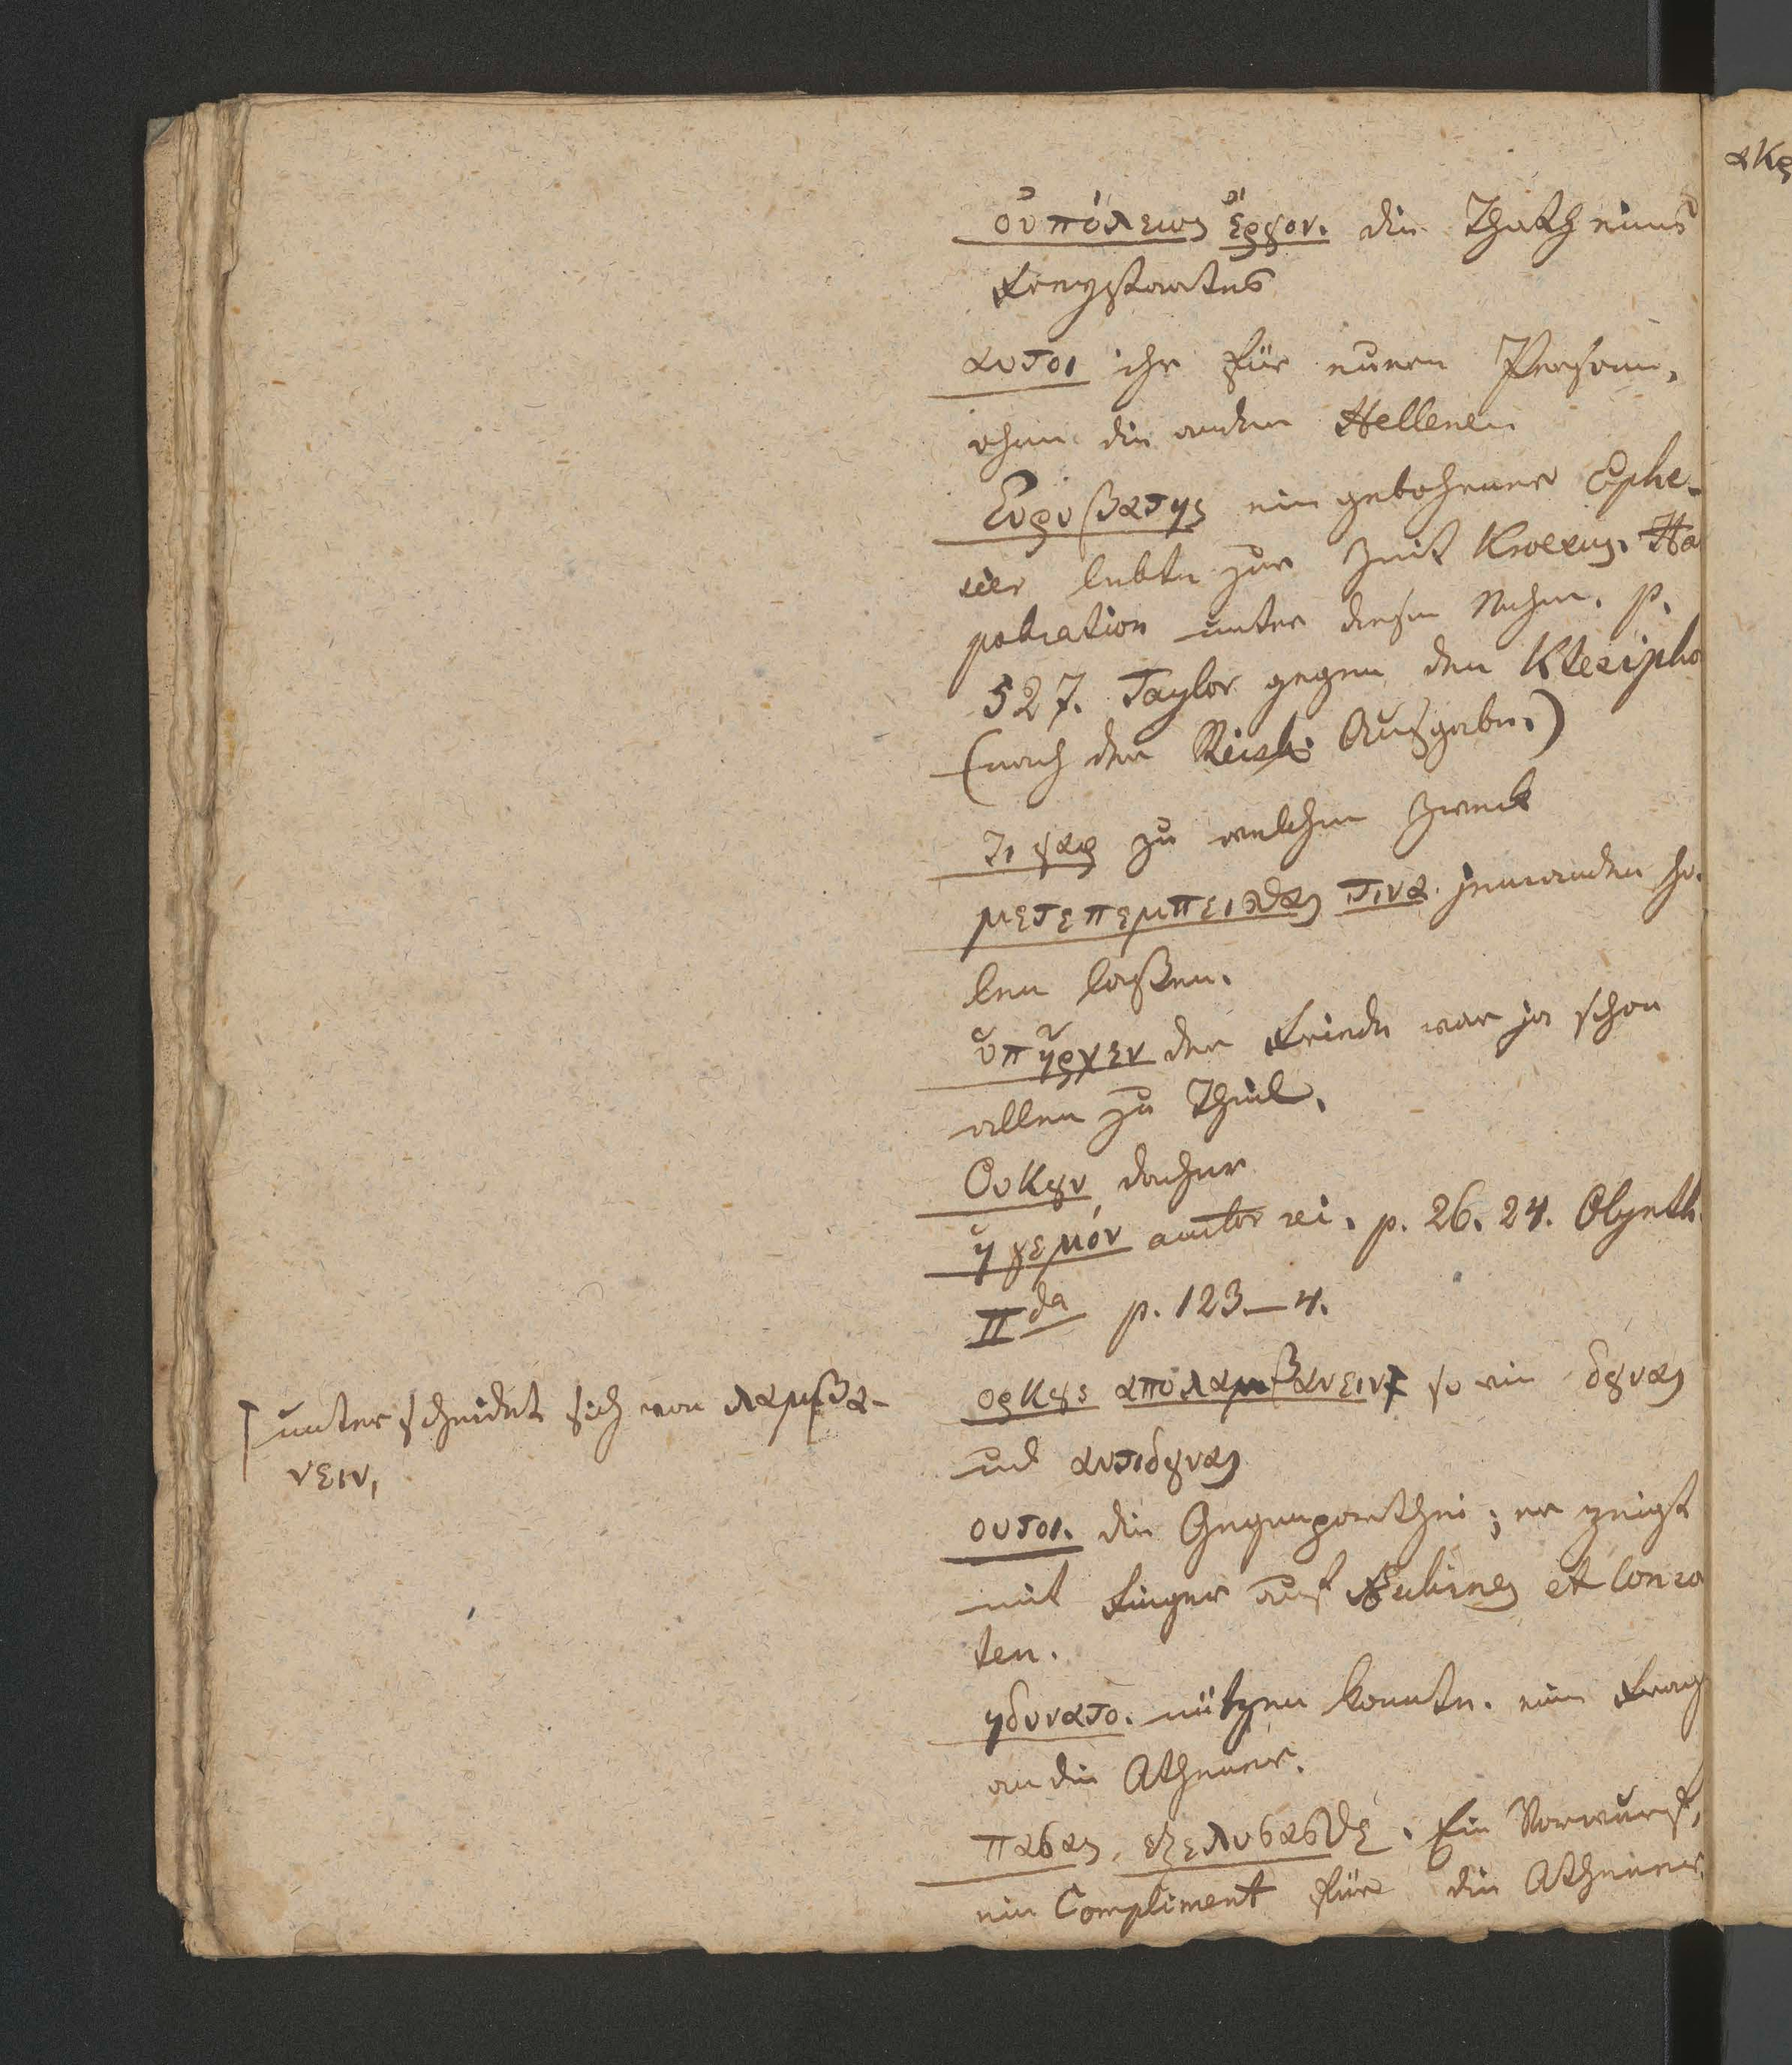 οὐ πόλεως ἔργον. die Thath eines
Freystaates
αυτοι ihr für eüern Persohn,
ohne die andern Hellenen
Ευρυβατης ein gebohrener Ephe-
sier lebte zur Zeit Kroesus. Ha
pokration unter diesem Nahm. p.
527. Taylor gegen den Ktesipho
(nach der Reisk. Ausgabe.)
τι γαρ zu welchem Zweck
μετεπεμπεισθαι τινα. jemanden ho-
len laßen.
ὑπῆρχεν der Friede war ja schon
allen zu Theil.
Ουκȣν daher
ἡγεμόν autor rei. p. 26. 24. Olynth.
IIda p. 123–4.
ορκȣς απολαμβανειν so wie δȣναι
und αντιδȣναι
unterscheidet sich von λαμβα-
νειν,
ουτοι. die Gegenparthei; er zeigt
mit Finger auf Aeschines et Consor
ten.
ηδυνατο. nützen konnte. eine Frag
an die Athener.
πασαι, εξελυσασθε. Ein Vorwurf,
ein Compliment für die Athener.
ακρ